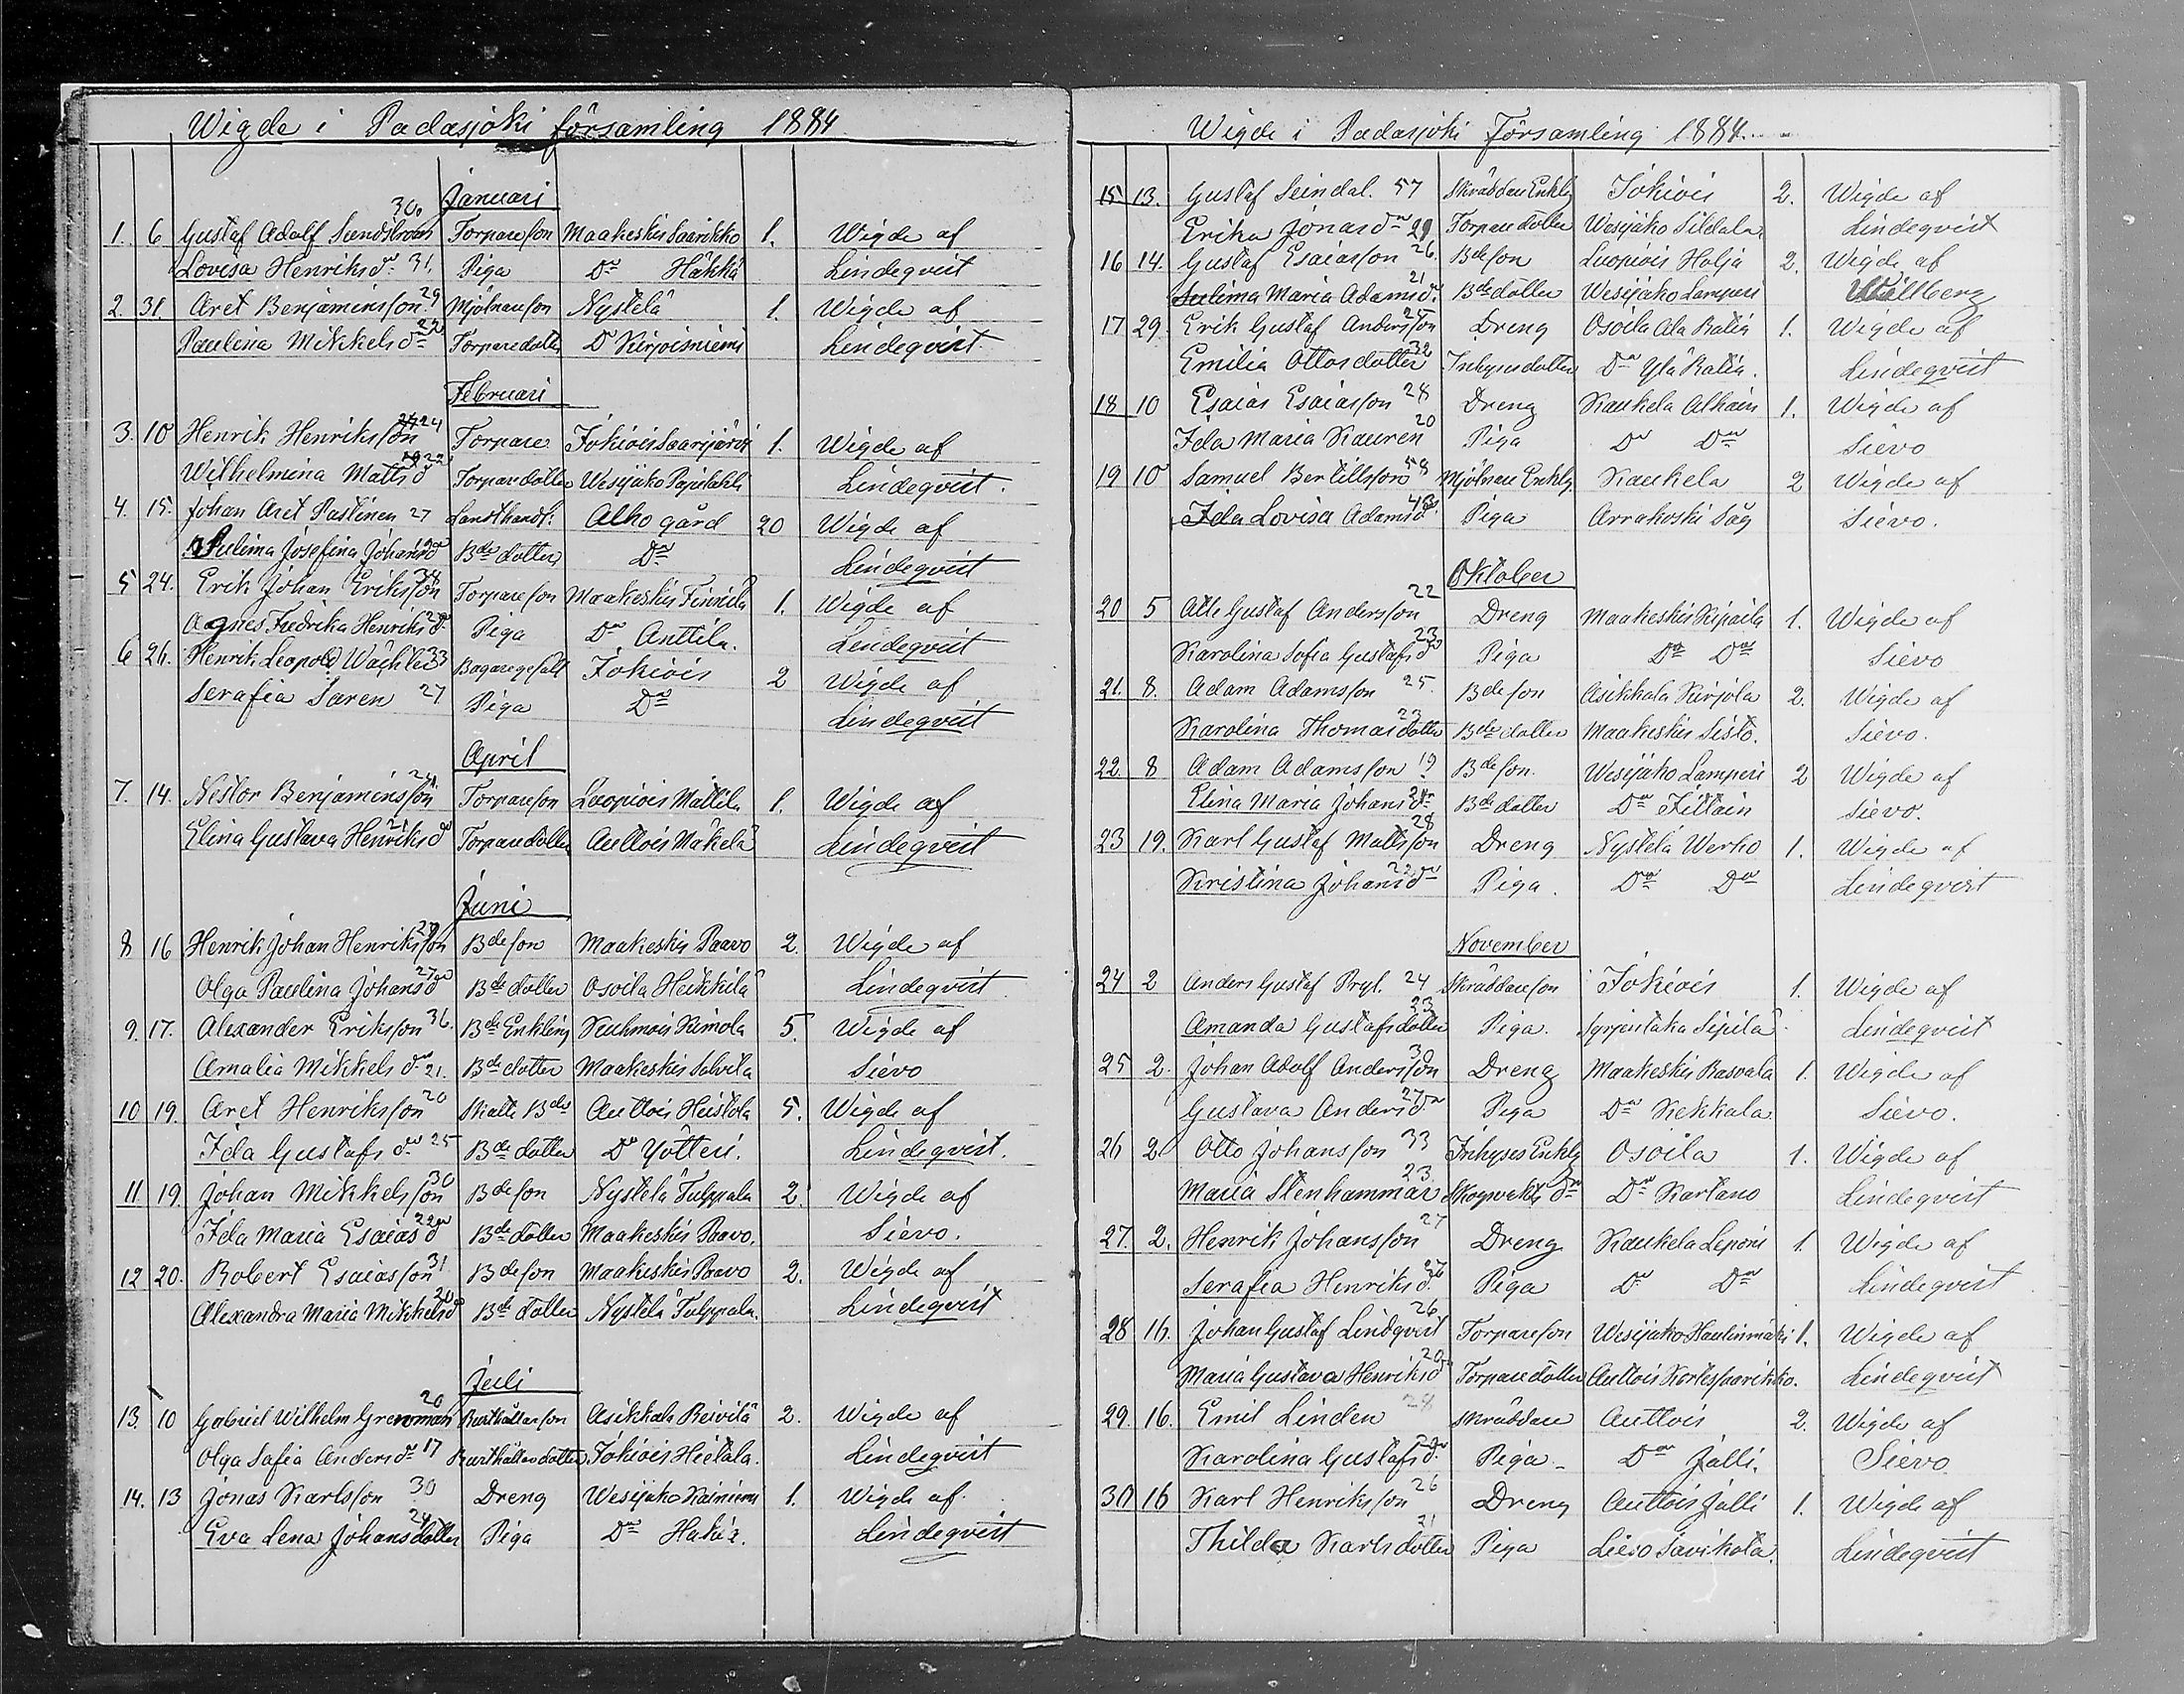 Wigde i Padasjoki församling 1884
Januari
1. 6 Gustaf Adolf Sundström 30. Torpareson Maakeskis Saarikko 1. Wigde af
Lovisa Henriksdr 31. Piga Do Häkkä Lindeqvist
2. 31. Axel Benjaminsson 29 Mjölnareson Nystelä 1. Wigde af
Paulina Mikkelsdr 22 Torparedotter Do Kirjoisniemi Lindeqvist
Februari
3. 10 Henrik Henriksson 24 Torpare Jokiois Saarijärvi 1. Wigde af
Wilhelmina Mattsd 22 Torparedotter Wesijako Lindeqvist.
4. 15. Johan Axel Pastinen 27 Landthandl. Alho gård 20 Wigde af
Sulima Josefina Johansd Bde dotter Do Lindeqvist
5 24. Erik Johan Eriksson 34 Torpareson Maakeskis Finnilä 1. Wigde af
Agnes Fredrika Henriksd Piga Do Anttila. Lindeqvist
6 26. Henrik Leopold Wächter 33 Bagaregesäll Jokiois 2 Wigde af
Serafia Saren 27 Piga Do Lindeqvist
April
7. 14. Nestor Benjaminsson 24 Torpareson Luopiois Mattila 1. Wigde af
Elina Gustava Henriksd 21 Torparedotter Auttois Mäkelä Lindeqvist
Juni
8 16 Henrik Johan Henriksson Bdeson Maakeskis Paavo 2. Wigde af
Olga Paulina Johansd 27 Bde dotter Osoila Heikkilä Lindeqvist
9. 17. Alexander Eriksson 36. Bde Enkling Kuhmois Kimola 5. Wigde af
Amalia Mikkelsd 21. Bde dotter Maakeskis Solvila Sievo
10 19. Axel Henriksson 20 Skatte Bde Auttois Heistola 5. Wigde af
Ida Gustafsdr 25 Bde dotter Do Yötteri. Lindeqvist.
11. 19. Johan Mikkelsson 30 Bdeson Nystelä Tulppala 2. Wigde af
Ida Maria Esaiasd 22 Bde dotter Maakeskis Paavo. Sievo.
12 20. Robert Esaiasson 31 Bdeson Maakeskis Paavo 2. Wigde af
Alexandra Maria Mikkelsd 20 Bde dotter Nystelä Tulppala. Lindeqvist
Juli
13. 10 Gabriel Wilhelm Grenman 20 Asikkala Reivilä 2. Wigde af
Olga Sofia Andersdr 17 Jokiois Hietala. Lindeqvist
14. 13 Jonas Karlsson 30 Dreng Wesijako Kainiemi 1. Wigde af
Eva Lena Johansdotter 24 Piga Do Lindeqvist
Wigde i Padasjoki Församling 1884.
15 13. Gustaf Seindal. 57 Skräddare Enklg Jokiois 2. Wigde af
Erika Jonasdr 29 Torparedotter Wesijako Sildala. Lindeqvist
16 14. Gustaf Esaiasson 26. Bdeson Luopiois Holja 2. Wigde af
Sulima Maria Adamsd. 21 Bde dotter Wesijako Lamperi Wållberg
17 29. Erik Gustaf Andersson 25 Dreng Osoila Ala Ratia 1. Wigde af
Emilia Ottosdotter 32 Inhysesdotter Do Ylä Ratia. Lindeqvist
18 10 Esaias Esaiasson 28 Dreng Kaukela Alhain 1. Wigde af
Ida Maria Kauren 20 Piga Do Do Sievo
19 10 Samuel Bertillsson 58 Mjölnare Enklg. Kaukela 2 Wigde af
Ida Lovisa Adamsd. Piga Arrakoski Såg Sievo.
Oktober
20 5 Atte Gustaf Andersson 22 Dreng Maakeskis Kipaila 1. Wigde af
Karolina Sofia Gustafsd 23 Piga Do Do Sievo
21. 8. Adam Adamsson 25. Bdeson Asikkala Kirjola 2. Wigde af
Karolina Thomasdotter 23 Bde dotter Maakeskis Sisto. Sievo.
22. 8 Adam Adamsson 19 Bdeson. Wesijako Lamperi 2 Wigde af
Elina Maria Johansdr Bde dotter Do Fittain Sievo.
23 19. Karl Gustaf Mattsson 28 Dreng Nystelä Werho 1. Wigde af
Kristina Johansdr 22 Piga. Do Do Lindeqvist
November
24 2 Anders Gustaf Pryl. 24 Skräddareson Jokiois 1. Wigde af
Amanda Gustafsdotter 23 Piga. Syrjintaka Sipilä. Lindeqvist
25 2. Johan Adolf Andersson 30 Dreng Maakeskis Rasvala 1. Wigde af
Gustava Andersdr 27 Piga Do Kekkala Sievo.
26 2 Otto Johansson 33 Inhyses Enklg Osoila 1. Wigde af
Maria Stenhammar 23 Skogvakts dr Do Kartano Lindeqvist
27. 2. Henrik Johansson 27 Dreng Kaukela Leponi 1. Wigde af
Serafia Henriksd. Piga Do Do Lindeqvist
28 16. Johan Gustaf Lindqvist 26 Torpareson Wesijako Haulinmäki 1. Wigde af
Maria Gustava Henriksd 20 Torparedotter Auttois Lindeqvist
29. 16. Emil Linden 28 Skräddare Auttois 2. Wigde af
Karolina Gustafsd. Piga Do Jälli. Sievo
30 16 Karl Henriksson 26 Dreng Auttois Jälli 1. Wigde af
Thilda Karlsdotter 21 Piga Lieso Savikota. Lindeqvist